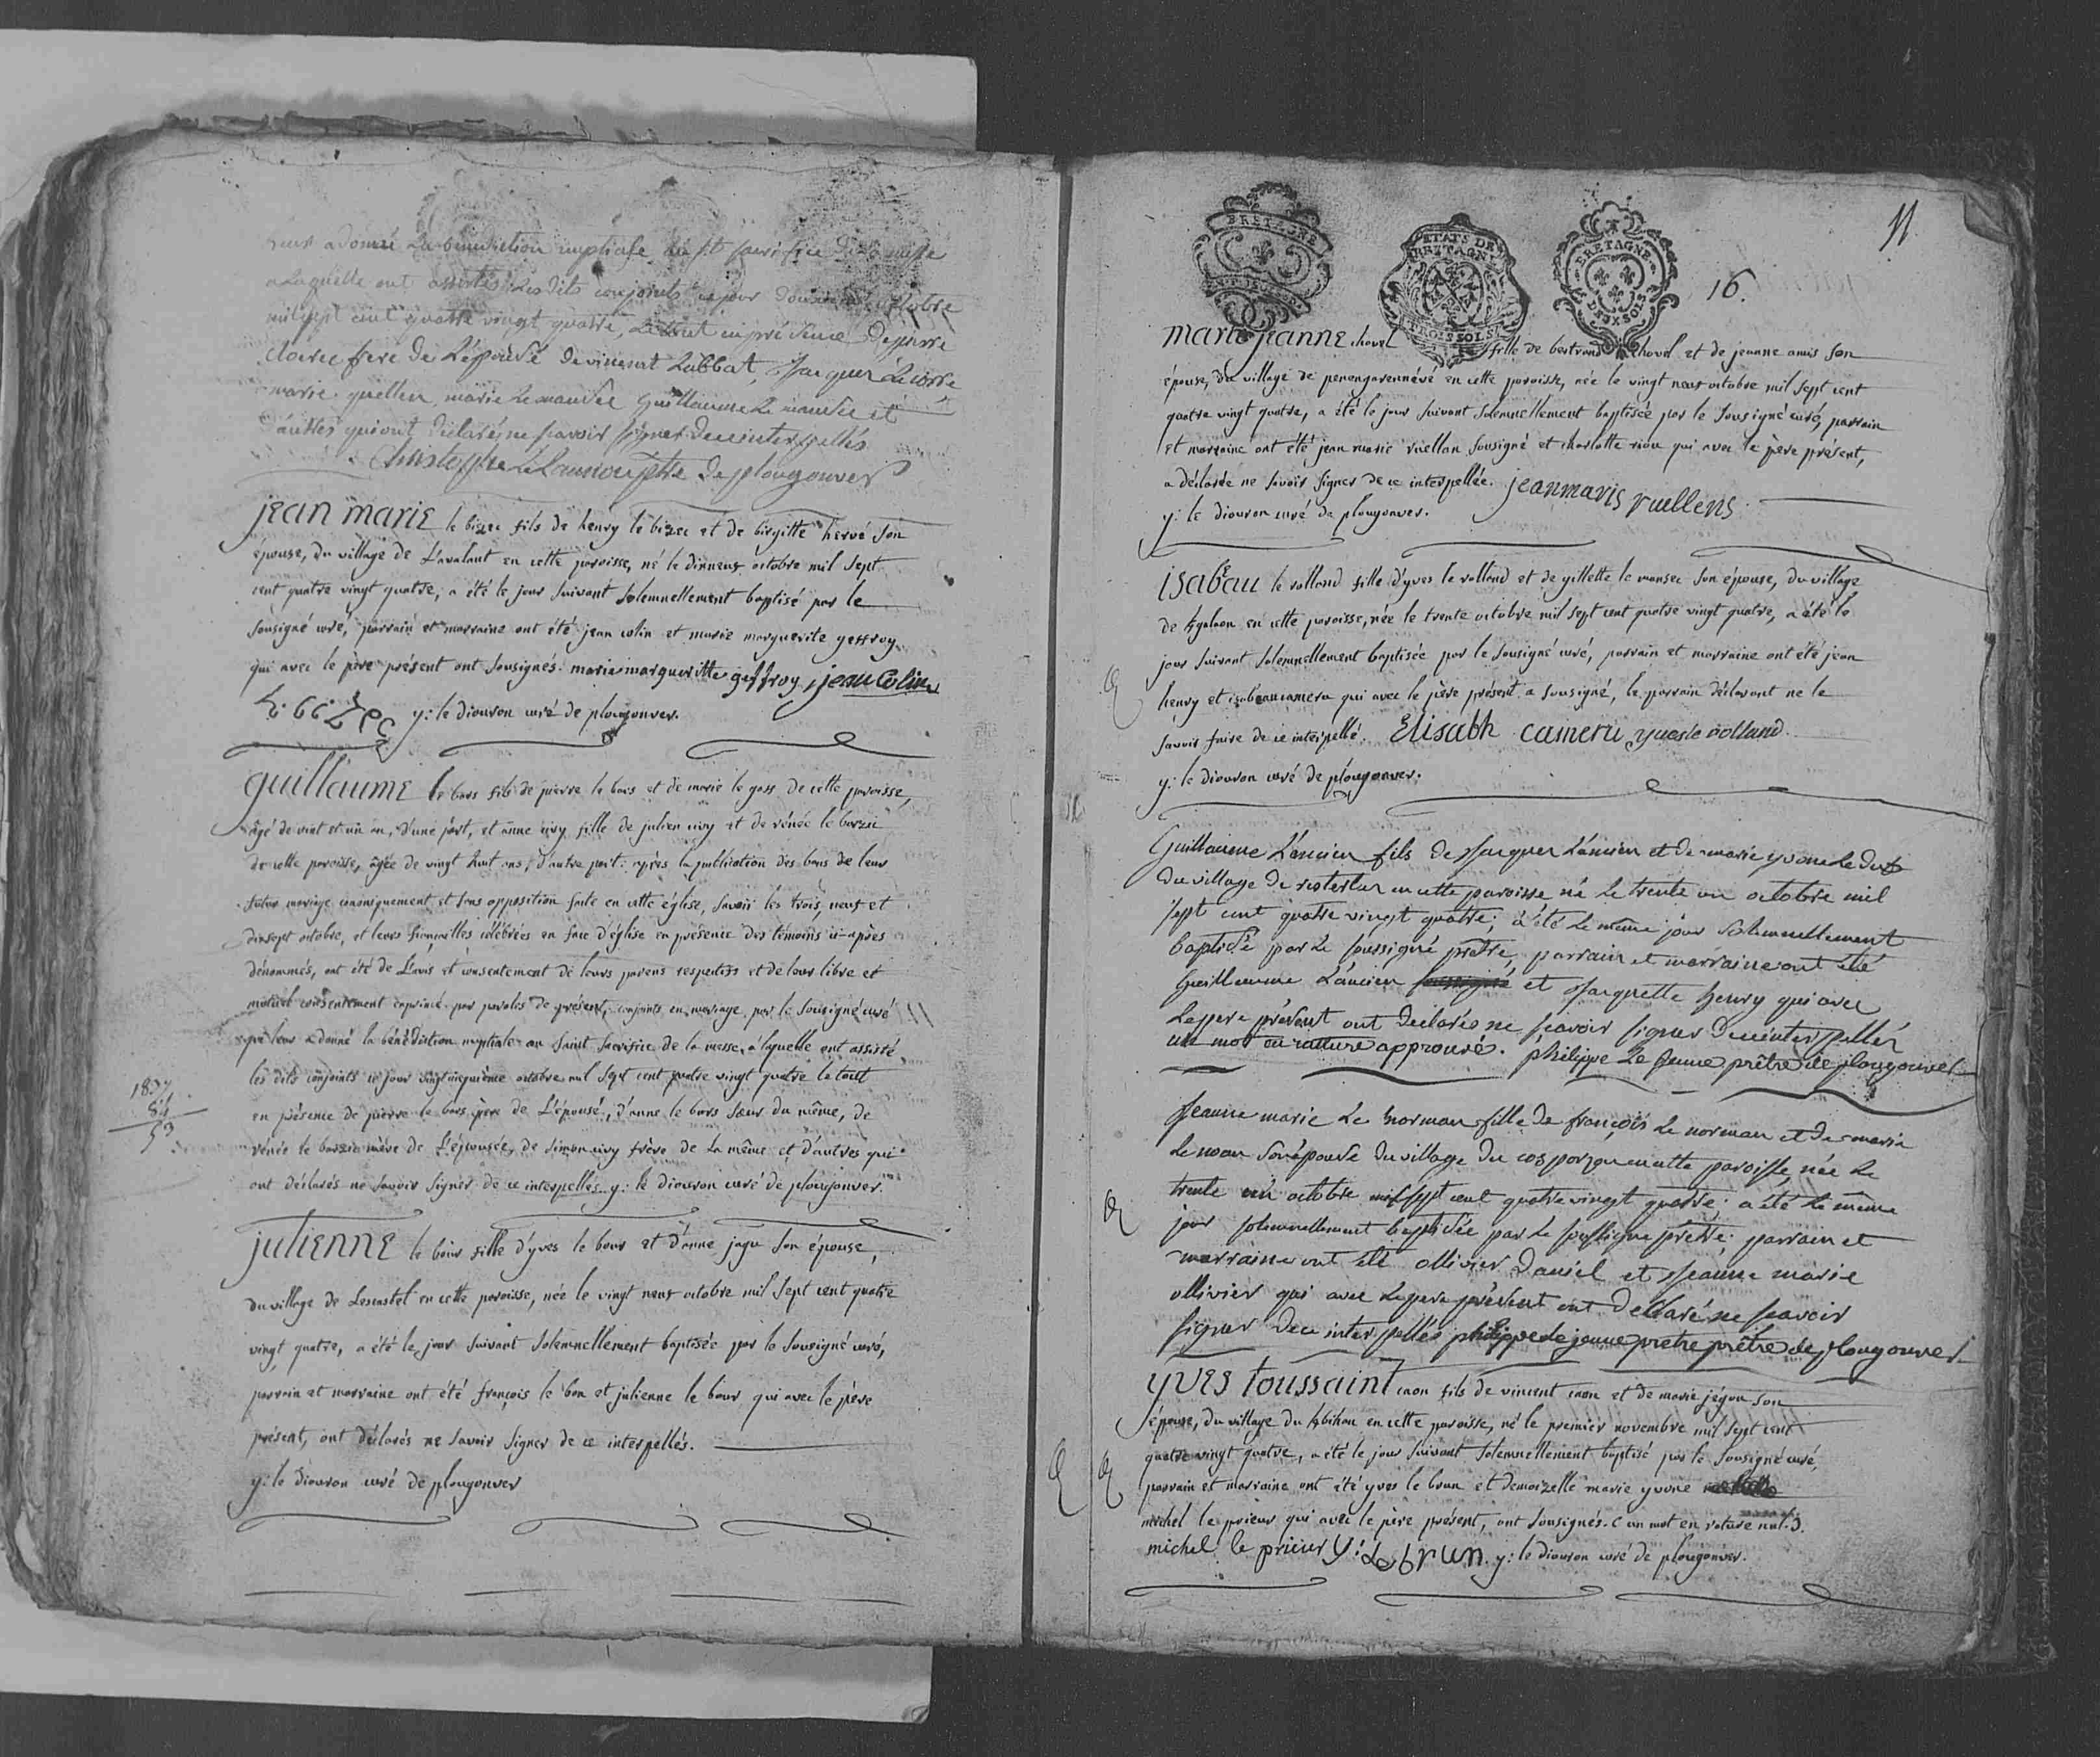 leur a donné la bénédiction nuptiale au st sacrifice de la messe
a laquelle ont assistés les dits conjoints ce jour octobre
mil sept cent quatre vingt quatre, le tout en présence de pierre
frere de l'épouse de vincent Labbat, jacques le corre
marie quellen, marie le manser guillaume le manser et
d'autres qui ont declarés ne scavoir signer de ce interpellés
Christophe ptre de plougonver
jean marie le bizec fils de henry le bizec et de birgitte hervé son
épouse, du village de L'avalant en cette paroisse, né le dixneuf octobre mil sept
cent quatre vingt quatre, a été le jour suivant solemnellement baptisé par le
sousigné curé, parrain et marraine ont été jean colin et marie marguerite geffroy
qui avec le père présent ont sousignés. marie marguerite geffroy jean Colin
y: le diouron curé de plougonver.
guillaume le bars fils de pierre le bars et de marie le goff de cette paroisse,
âgé de vint et un an, d'une part, et anne civy fille de julien civy et de rénée le barzic
de cette paroisse, âgée de vingt huit ans, d'autre part: après la publication des bans de leur
futur mariage canoniquement et sans opposition faite en cette église, savoir les trois, neuf et
dixsept octobre, et leurs fiançailles célébrées en face d'église en présence des témoins ci-après
dénommés, ont été de l'avis et consentement de leurs parens respectifs et de leur libre et
mutuel consentement exprimé par paroles de présent, conjoints en mariage par le sousigné curé
qui leur a donné la bénédiction nuptiale au saint sacrifice de la messe, à laquelle ont assisté
les dits conjoints ce jour vingtcinquième octobre mil sept cent quatre vingt quatre le tout
en présence de pierre le bars père de L'épousé, d'anne le bars sœur du même, de
rénée le barzic mère de L'épousée, de simon civy frère de la même et d'autres qui
ont déclarés ne savoir signer de ce interpellés y: le diouron curé de plougonver.
1837
84
53
julienne le bour fille d'yves le bour et d'anne jagu son épouse,
du village de Lescastel en cette paroisse, née le vingt neuf octobre mil sept cent quatre
vingt quatre, a été le jour suivant solemnellement baptisée par le sousigné curé,
parrain et marraine ont été françois le bon et julienne le bour qui avec le père
présent, ont déclarés ne savoir signer de ce interpellés.
y: le diouron curé de plougonver
BRETAGNE
ETATS DE BRETAGNE
TROIS SOLS
BRETAGNE
DEUX SOLS
16.
11
marie jeanne chovel fille de bertrand chovel et de jeanne amis son
épouse, du village de penengarennévé en cette paroisse, née le vingt neuf octobre mil sept cent
quatre vingt quatre, a été le jour suivant solemnellement baptisée par le sousigné curé, parrain
et marraine ont été jean marie ruellan sousigné et charlotte riou qui avec le père présent,
a déclarée ne savoir signer de ce interpellée. jean maris ruellens
y: le diouron curé de plougonver.
isabeau le rolland fille d'yves le rolland et de gillette le manser son épouse, du village
de en cette paroisse, née le trente octobre mil sept cent quatre vingt quatre, a été le
jour suivant solemnellement baptisée par le sousigné curé, parrain et marraine ont été jean
henry et isabeau cameru qui avec le père présent a sousigné, le parrain déclarant ne le
savoir faire de ce interpellé. Elisabh cameru yves le rolland
y: le diouron curé de plougonver.
Guillaume L'ancien fils de jacques L'ancien et de marie yvonne le
du village de en cette paroisse né le trente un octobre mil
sept cent quatre vingt quatre; a été le même jour solemnellement
baptisé par le soussigné prêtre, parrain et marraine ont été
Guillaume L'ancien et jacquette henry qui avec
le pere présent ont declarés ne scavoir signer de ce interpellés
un mot en rature approuvé. philippe le jeune prêtre de plougonver
jeanne marie le norman fille de françois le norman et de marie
le moan son épouse du village du cozporz en cette paroisse, née le
trente un octobre mil sept cent quatre vingt quatre; a été le même
jour solemnellement baptisée par le soussigné prêtre; parrain et
marraine ont été ollivier daniel et jeanne marie
ollivier qui avec le pere présent ont déclaré ne scavoir
signer de ce interpellés philippe le jeune prêtre prêtre de plougonver
yves toussaint caon fils de vincent caon et de marie jégou son
épouse, du village du en cette paroisse, né le premier novembre mil sept cent
quatre vingt quatre, a été le jour suivant solemnellement baptisé par le sousigné curé,
parrain et marraine ont été yves le brun et demoizelle marie yvone
michel le prieur qui avec le père présent, ont sousignés. ( un mot en rature nul ).
michel le prieur y: Lebrun. y: le diouron curé de plougonver.